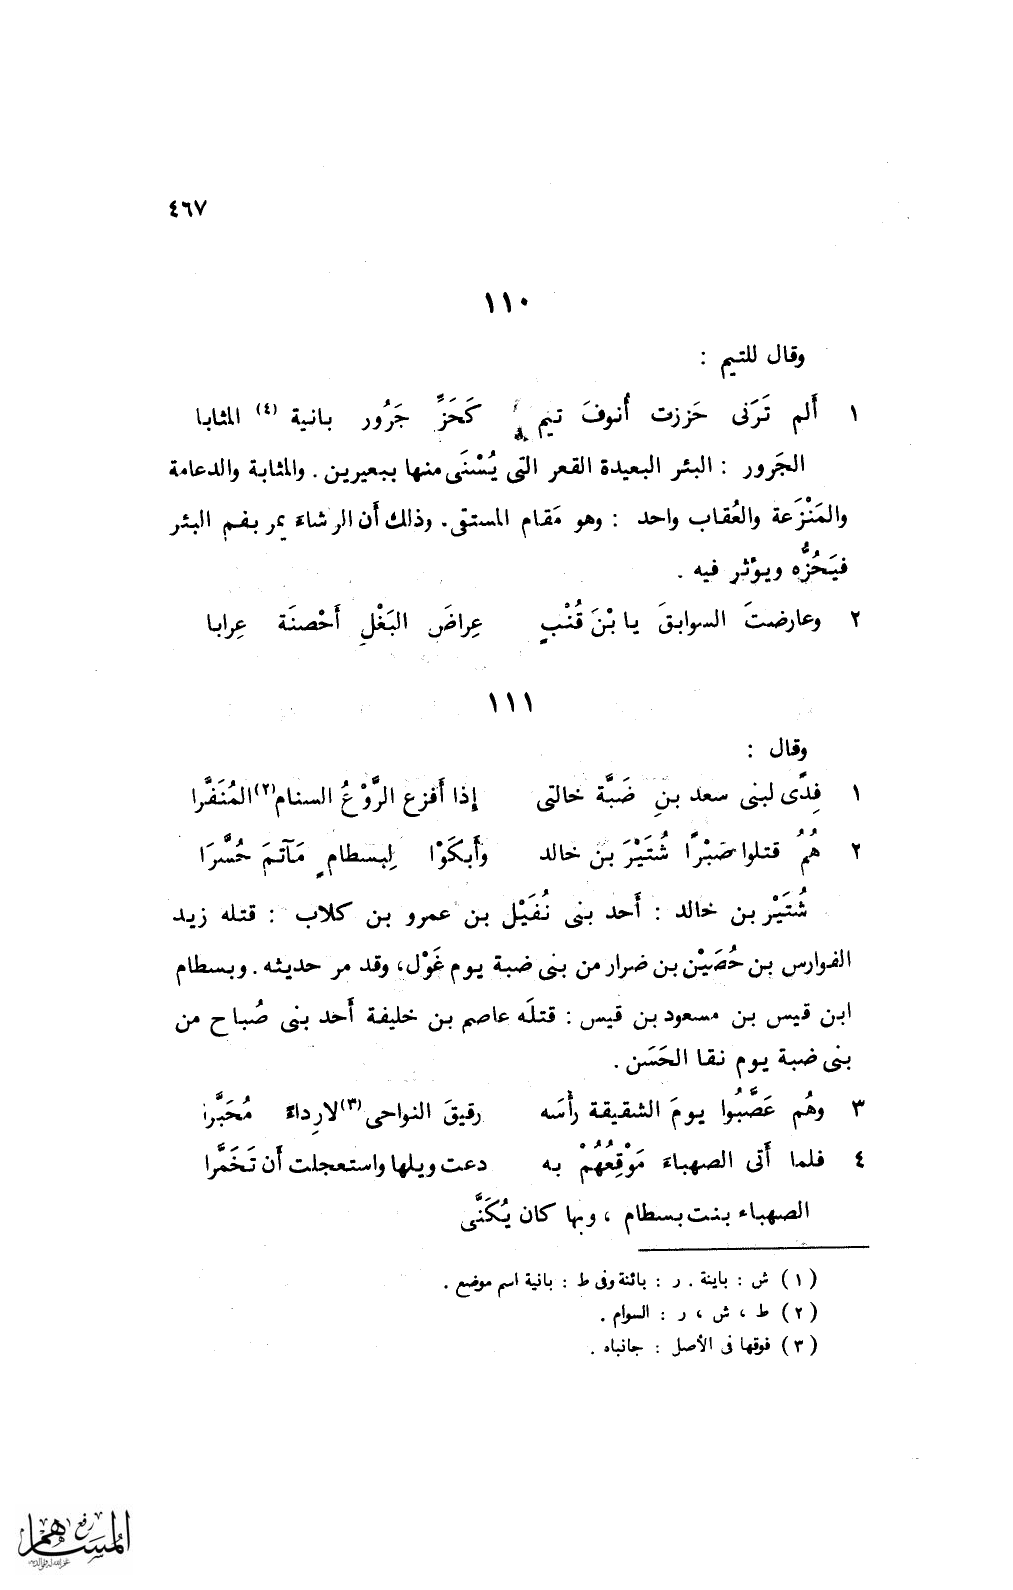 ٤٦٧
١١٠
وقال للتيم :
١ أَلم تَرَنى حَززت أُنوفَ تيم كَحَزِّ جَرُور بانية (٤) المثابا
الجَرور : البئر البعيدة القعر التى يُسْنَى منها ببعيرين . والمثابة والدعامة
والمَنْزَعة والعُقاب واحد : وهو مَقام المستقى . وذلك أن الرشاءَ يمر بفم البئر
فيَحُزُّه ويؤثر فيه .
٢ وعارضتَ السوابقَ يا بْنَ قُنْبٍ عِراضَ البَغْلِ أَحْصنَة عِرابا
١١١
وقال :
١ فِدًى لبنى سعد بنِ ضَبَّة خالتى إذا أَفزع الرَّوْعُ السنام(٢) المُنَفَّرا
٢ هُمُ قتلوا صَبْرًا شُتَيْرَ بن خالد وأَبكَوْا لِبسطامٍ مَآتمَ حُسَّرَا
شُتَيْر بن خالد : أَحد بنى نُفَيْل بن عمرو بن كلاب : قتله زيد
الفوارس بن حُصَيْن بن ضرار من بنى ضبة يوم غَوْل، وقد مر حديثه . وبسطام
ابن قيس بن مسعود بن قيس : قتلَه عاصم بن خليفة أَحد بنى صُباح من
بنى ضبة يوم نقا الحَسَن .
٣ وهُم عَصَّبُوا يومَ الشقيقة رأْسَه رقيقَ النواحى(٣) لا رِداءَ مُحَبَّرا
٤ فلما أَتى الصهباءَ مَوْقِعُهُمْ به دعت ويلها واستعجلت أَن تَخَمَّرا
الصهباء بنت بسطام ، وبها كان يُكَنَّى
( ١ ) ش : باينة . ر : بائنة وفى ط : بانية اسم موضع .
( ٢ ) ط ، ش ، ر : السوام .
( ٣ ) فوقها فى الأصل : جانباه .
رفع
المساهم